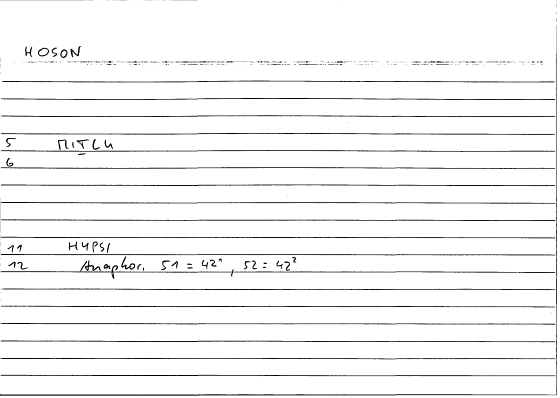 HOSON
5 MITCH
6
11 HYPSI
12 Anaphor. 51 = 42¹, 52 = 42²